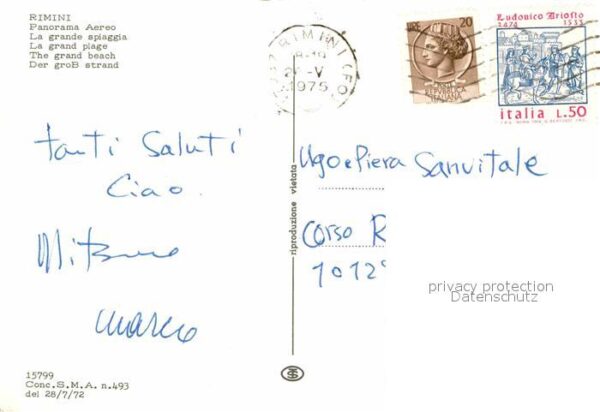 RIMINI
Panorama Aereo
La grande spiaggia
La grand plage
The grand beach
Der groB strand
RIMINI (FO)
-V
1975
LIRE 20
REPVBBLICA
ITALIANA
Ludovico Ariosto
1474 1533
italia L.50
Tanti Saluti
Ciao
marco
riproduzione vietata
Ugo e Piera Sanvitale
Corso R
1012
privacy protection
Datenschutz
15799
Conc.S.M.A. n.493
del 28/7/72